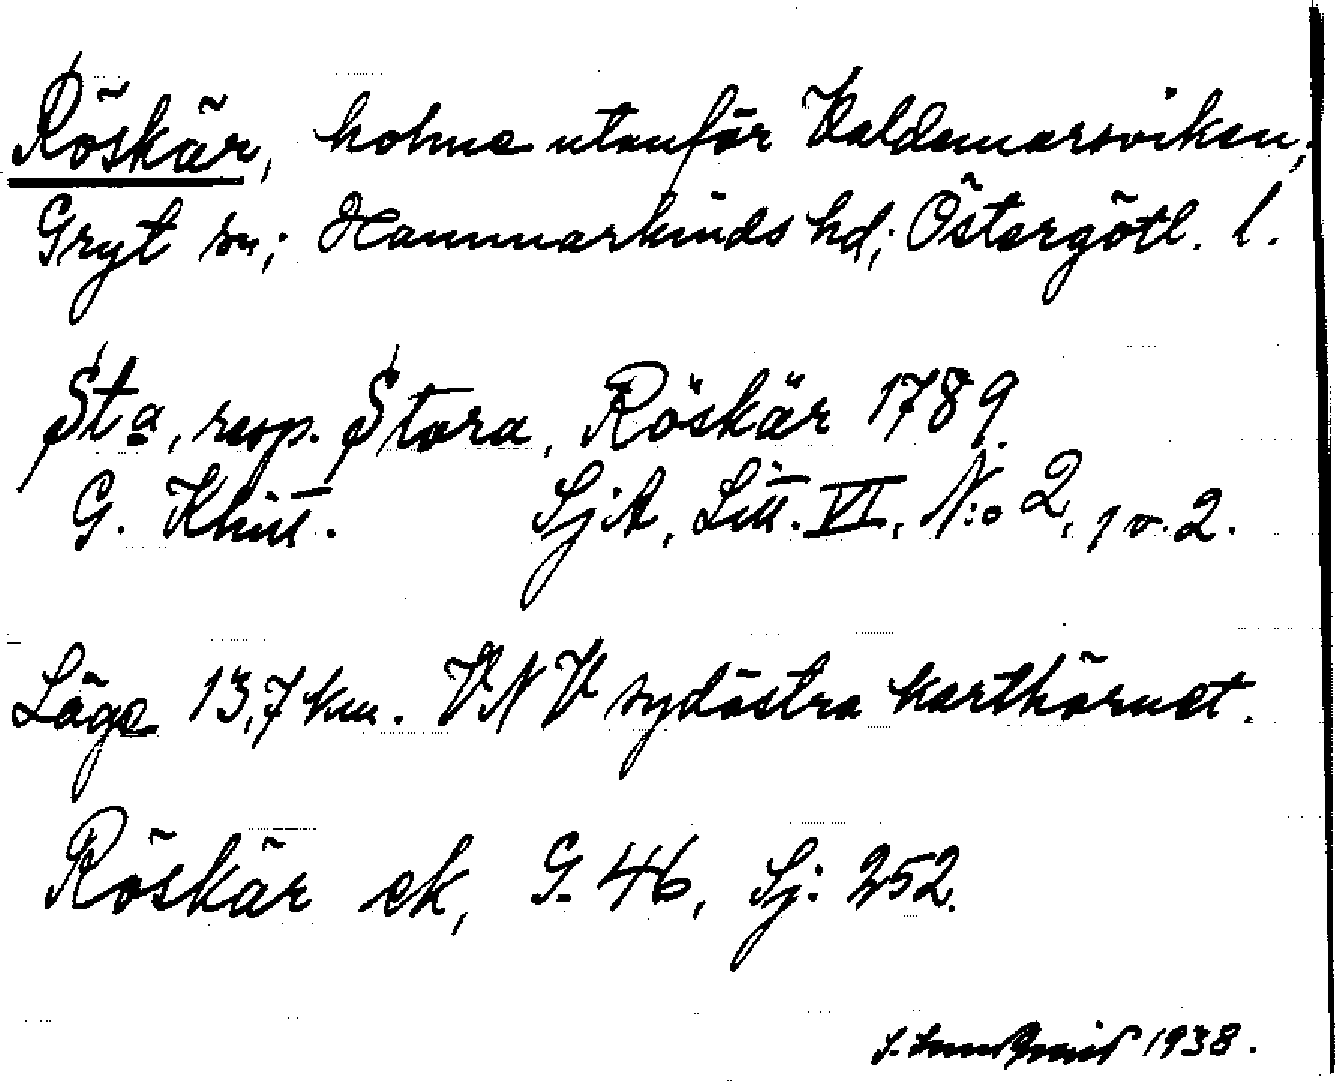 Röskär, holme utanför Valdemarsviken,
Gryt sn; Hammarkinds hd; Östergötl. l.
Sta, resp. Stora, Röskär 1789.
G. Klint. SjA, Litt. VI, N:o 2, 1 o. 2.
Läge 13,7 km. VNV sydöstra karthörnet.
Röskär ek, G. 46, Sj: 252.
1938.